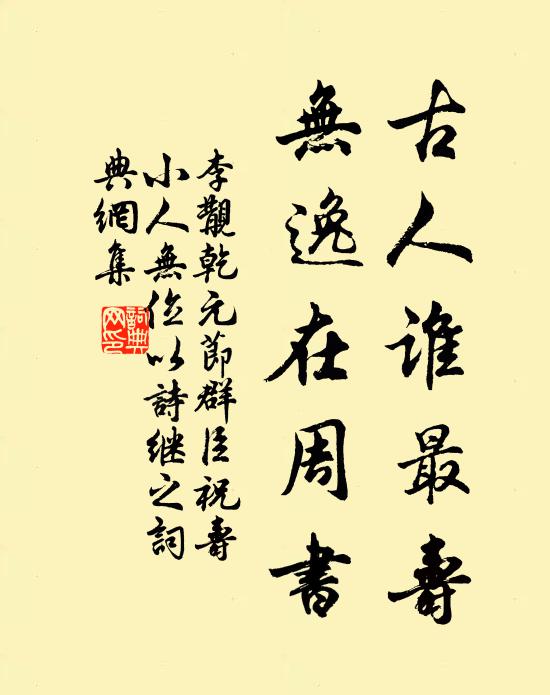 古人誰最壽
無逸在周書
李覯乾元節群臣祝壽
小人無位以詩继之詞
典網集
詞典网印